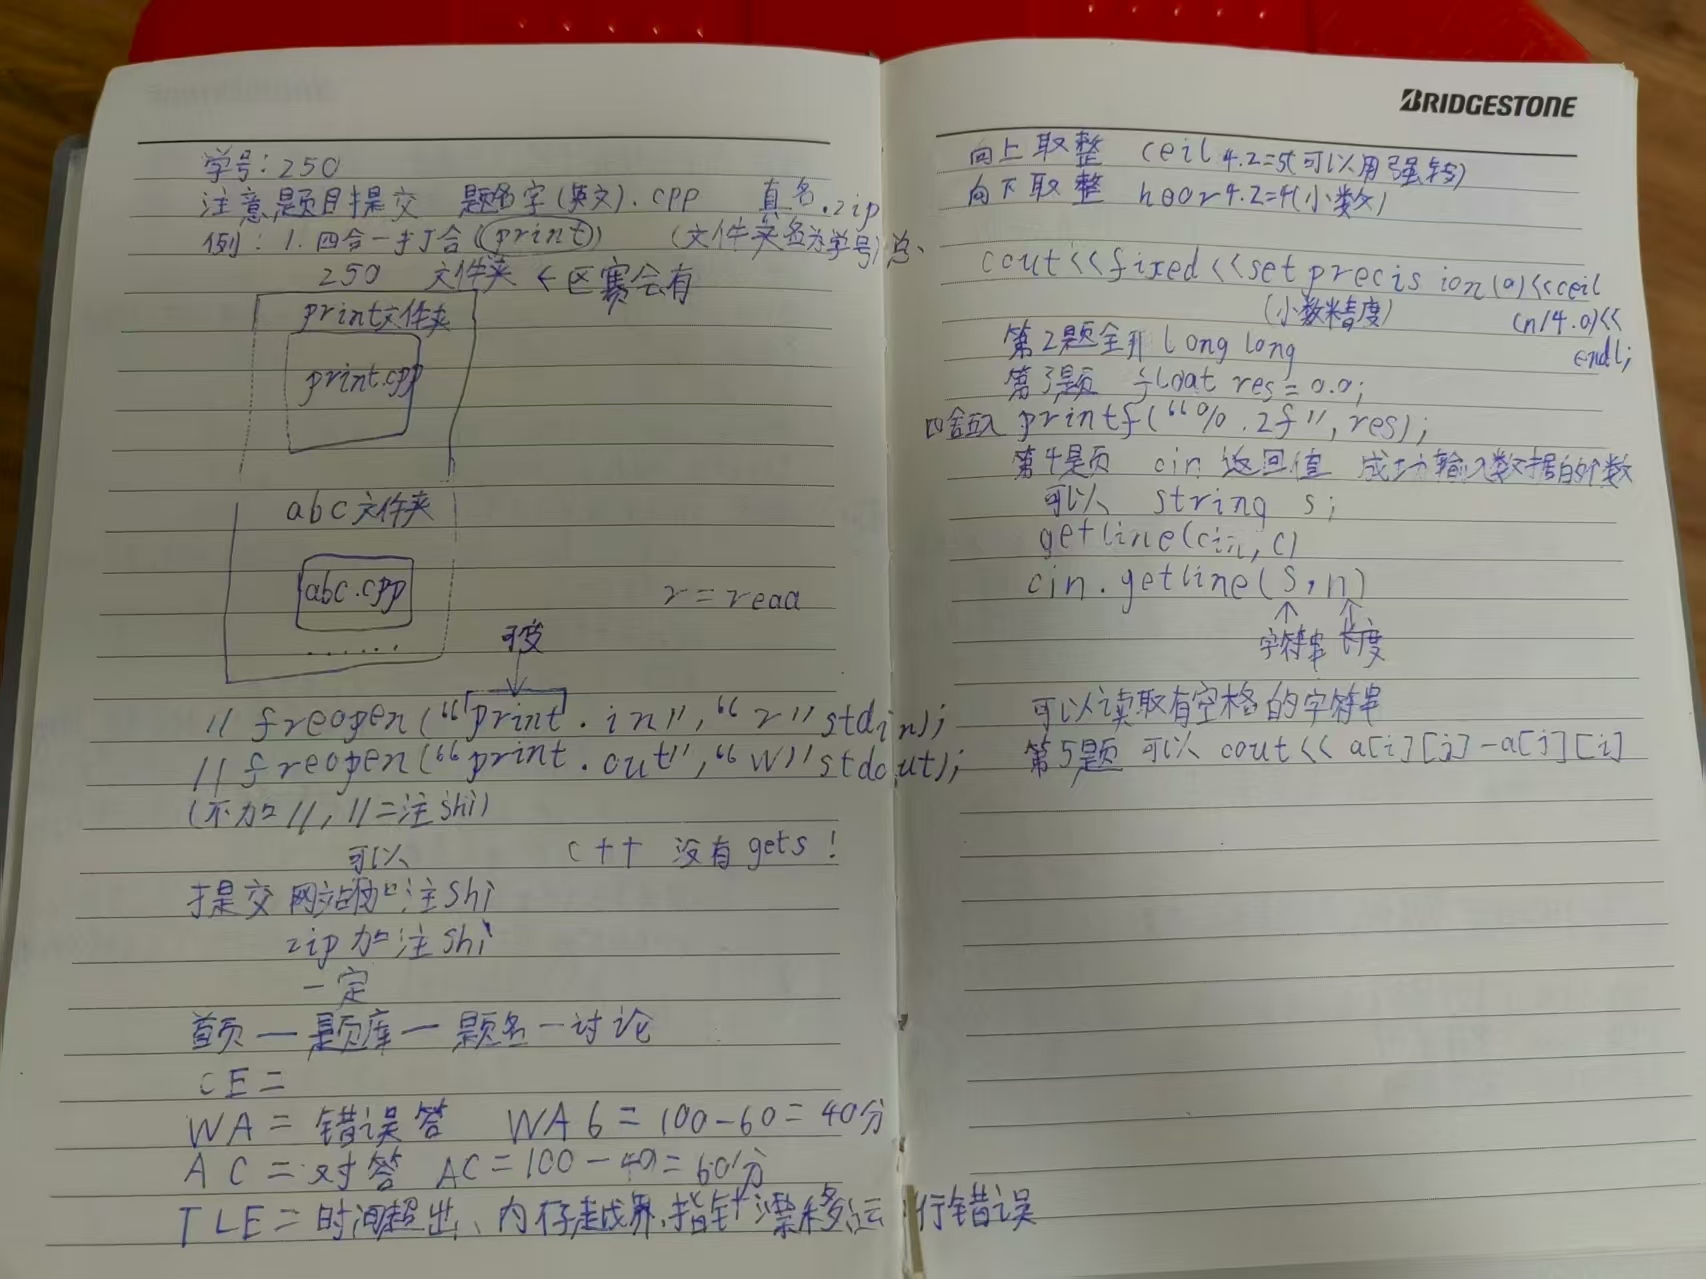 学号:250
注意题目提交 题名字(英文).cpp 真名.zip
例:1.四合一打合((print)) (文件夹名为学号)总、
250 文件夹 ← 区赛会有
print文件夹
print.cpp
abc文件夹
abc.cpp
......
r = read
可变
// freopen(“print.in”,“r”stdin);
// freopen(“print.out”,“w”stdout);
(不加//,//=注shi)
可以
c++ 没有gets!
提交 网站 加注shi
zip 加注shi
一定
首页—题库—题名—讨论
CE=
WA=错误答 WA6=100-60=40分
AC=对答 AC=100-40=60分
TLE=时间超出、内存越界,指针漂移,运行错误
BRIDGESTONE
向上取整 ceil 4.2=5(可以用强转)
向下取整 hoor4.2=4(小数)
cout<<fixed<<setprecision(0)<<ceil
(小数精度) (n/4.0)<<
endl;
第2题全开long long
第3题 float res=0.0;
四舍五入 printf(“%.2f”,res);
第4题 cin 返回值 成功输入数据的个数
可以 string s;
getline(cin,c)
cin.getline(s,n)
字符串 长度
可以读取有空格的字符串
第5题 可以 cout<<a[i][j]-a[j][i]